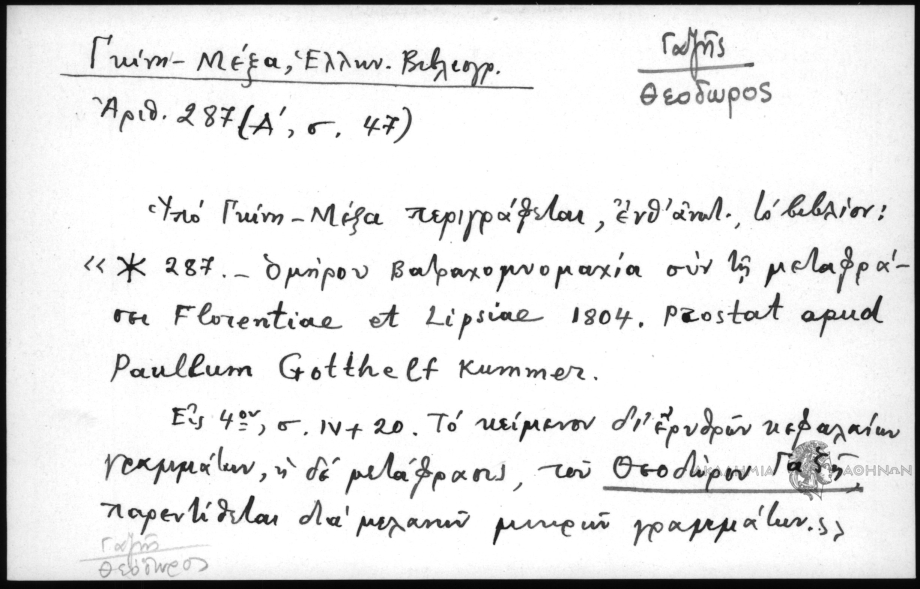 Γκίνη - Μέξα, Ἑλλην. Βιβλιογρ.
Γαζῆς
Θεόδωρος
Ἀριθ. 287 (Α', σ. 47)
Ὑπό Γκίνη - Μέξα περιγράφεται, ἔνθ' ἀνωτ., τό βιβλίον:
« * 287. - Ὁμήρου Βατραχομυομαχία σύν τῇ μεταφρά-
σει Florentiae et Lipsiae 1804. Prostat apud
Paullum Gotthelf Kummer.
Εἰς 4ον, σ. IV + 20. Τό κείμενον δι' ἐρυθρῶν κεφαλαίων
γραμμάτων, ἡ δέ μετάφρασις, τοῦ Θεοδώρου Γαζῆ,
παρεντίθεται διά μελανῶν μικρῶν γραμμάτων.»
ΑΚΑΔΗΜΙΑ ΑΘΗΝΩΝ
Γαζῆς
Θεόδωρος